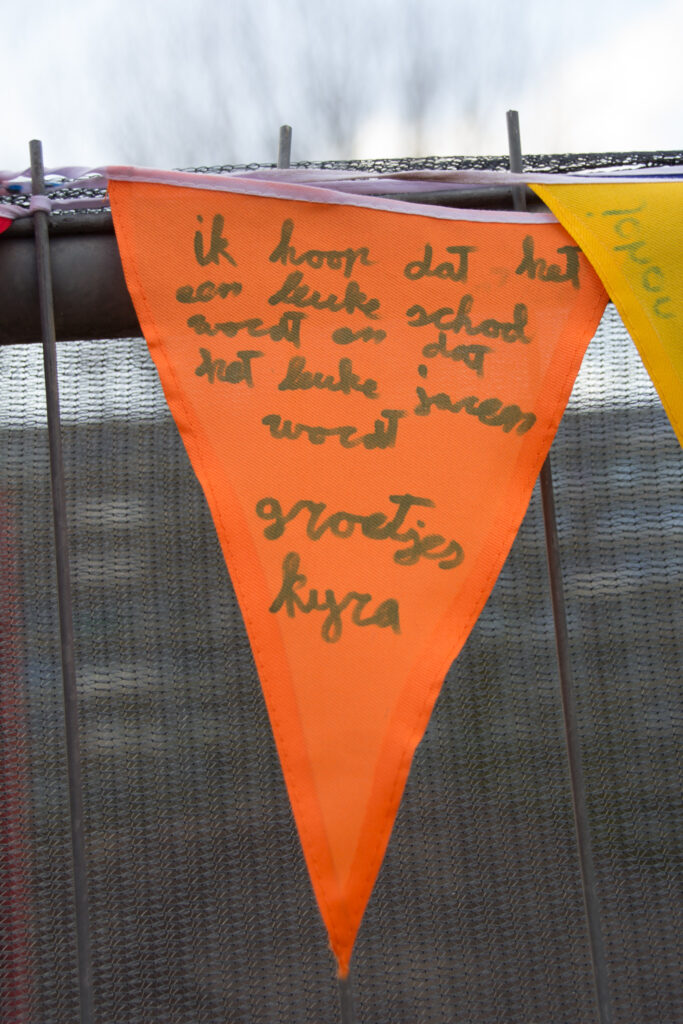 ik hoop dat het
een leuke school
wordt en dat
het leuke jaren
wordt
groetjes
kyra